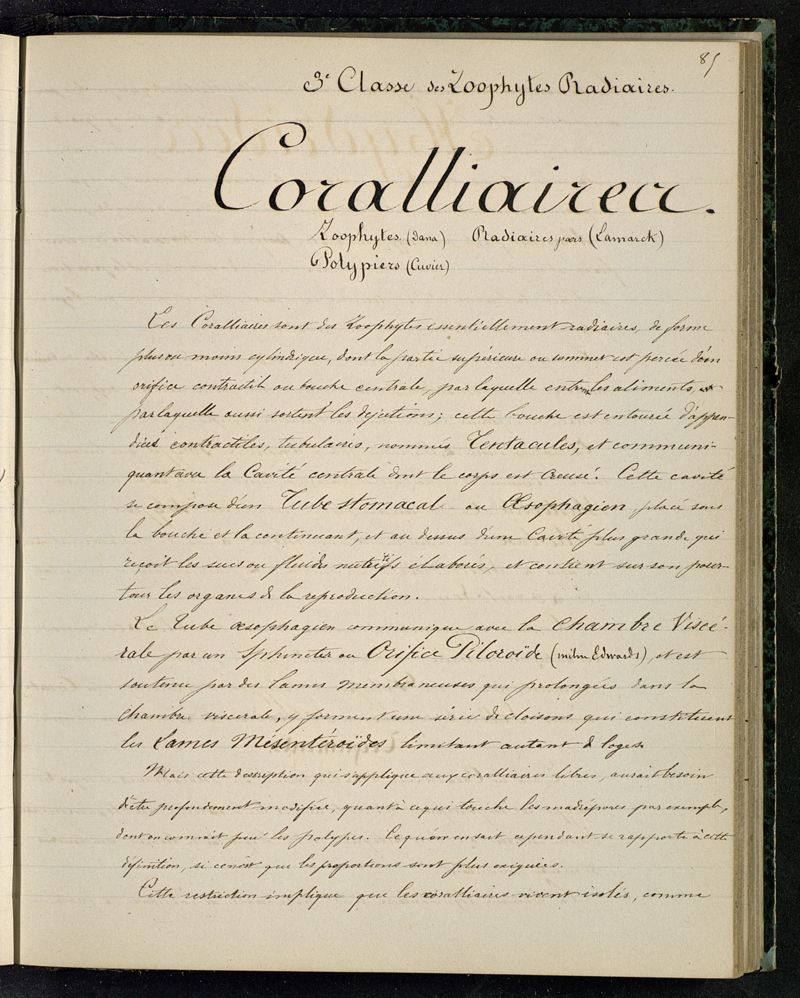 85
3e Classe des Zoophytes Radiaires.
Coralliairea.
Zoophytes (Dana) Radiaires pars (Lamarck)
Polypiers (Cuvier)
Les Coralliaires sont des Zoophytes essentiellement radiaires, de forme
plus ou moins cylindrique, dont la partie supérieure ou sommet est percée d'un
orifice contractil ou bouche centrale, par laquelle entre les aliments et
par laquelle aussi sortent les dejections; cette bouche est entourée d'appen-
dices contractiles, tubulaires, nommés Tentacules, et communi-
quant avec la Cavité centrale dont le corps est creusé. Cette cavité
se compose d'un Tube stomacal ou Œsophagien placé sous
la bouche et la continuant, et au dessus d'une Cavité plus grande qui
reçoit les sucs ou fluides nutritifs élaborés, et contient sur son pour-
tour les organes de la reproduction.
Le Tube œsophagien communique avec la Chambre Viscé-
rale par un Sphincter ou Orifice Piloroïde (milne Edwards), et est
soutenu par des lames membraneuses qui prolongées dans la
chambre viscerale, y forment une série de cloisons qui constituent
les Lames Mésentéroïdes limitant autant de loges.
Mais cette description qui s'applique aux coralliaires libres, aurait besoin
d'être profondement modifiée, quant à ce qui touche les madrépores par exemple,
dont on connait peu les polypes. Ce qu'on en sait cependant se rapporte à cette
définition, si ce n'est que les proportions sont plus exiguées.
Cette restriction implique que les coralliaires vivent isolés, comme